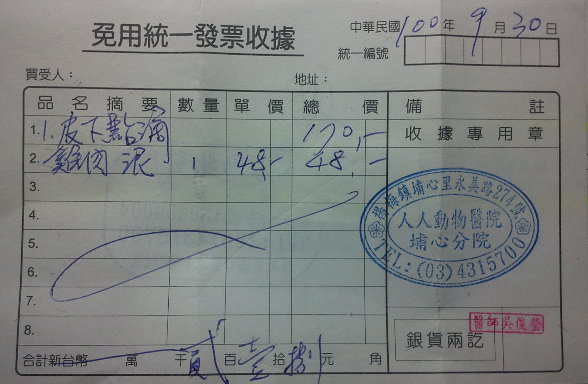 免用統一發票收據
中華民國 100 年 9 月 30 日
統一編號
買受人：
地址：
品名摘要 數量 單價 總價 備註
1. 1.皮下點滴 170,-
收據專用章
2. 雞肉泥 1 48,- 48,-
3.
4.
5.
6.
7.
8.
楊梅鎮埔心里永美路274號
人人動物醫院
埔心分院
TEL:(03)4315700
醫師吳俊瑩
銀貨兩訖
合計新台幣 萬 千 貳 百 壹 拾 捌 元 角